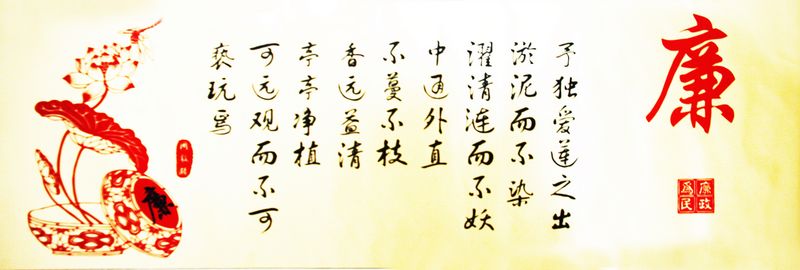 廉
廉政
為民
予独爱莲之出
淤泥而不染
濯清涟而不妖
中通外直
不蔓不枝
香远益清
亭亭净植
可远观而不可
亵玩焉
廉